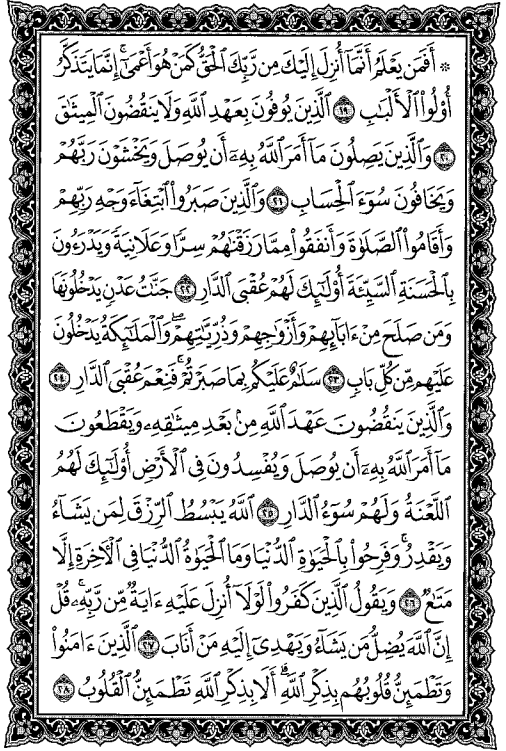 ۞ أَفَمَن يَعْلَمُ أَنَّمَآ أُنزِلَ إِلَيْكَ مِن رَّبِّكَ ٱلْحَقُّ كَمَنْ هُوَ أَعْمَىٰٓ ۚ إِنَّمَا يَتَذَكَّرُ
أُو۟لُوا۟ ٱلْأَلْبَٰبِ ١٩ ٱلَّذِينَ يُوفُونَ بِعَهْدِ ٱللَّهِ وَلَا يَنقُضُونَ ٱلْمِيثَٰقَ
٢٠ وَٱلَّذِينَ يَصِلُونَ مَآ أَمَرَ ٱللَّهُ بِهِۦٓ أَن يُوصَلَ وَيَخْشَوْنَ رَبَّهُمْ
وَيَخَافُونَ سُوٓءَ ٱلْحِسَابِ ٢١ وَٱلَّذِينَ صَبَرُوا۟ ٱبْتِغَآءَ وَجْهِ رَبِّهِمْ
وَأَقَامُوا۟ ٱلصَّلَوٰةَ وَأَنفَقُوا۟ مِمَّا رَزَقْنَٰهُمْ سِرًّا وَعَلَانِيَةً وَيَدْرَءُونَ
بِٱلْحَسَنَةِ ٱلسَّيِّئَةَ أُو۟لَٰٓئِكَ لَهُمْ عُقْبَى ٱلدَّارِ ٢٢ جَنَّٰتُ عَدْنٍ يَدْخُلُونَهَا
وَمَن صَلَحَ مِنْ ءَابَآئِهِمْ وَأَزْوَٰجِهِمْ وَذُرِّيَّٰتِهِمْ ۖ وَٱلْمَلَٰٓئِكَةُ يَدْخُلُونَ
عَلَيْهِم مِّن كُلِّ بَابٍ ٢٣ سَلَٰمٌ عَلَيْكُم بِمَا صَبَرْتُمْ ۚ فَنِعْمَ عُقْبَى ٱلدَّارِ ٢٤
وَٱلَّذِينَ يَنقُضُونَ عَهْدَ ٱللَّهِ مِنۢ بَعْدِ مِيثَٰقِهِۦ وَيَقْطَعُونَ
مَآ أَمَرَ ٱللَّهُ بِهِۦٓ أَن يُوصَلَ وَيُفْسِدُونَ فِى ٱلْأَرْضِ أُو۟لَٰٓئِكَ لَهُمُ
ٱللَّعْنَةُ وَلَهُمْ سُوٓءُ ٱلدَّارِ ٢٥ ٱللَّهُ يَبْسُطُ ٱلرِّزْقَ لِمَن يَشَآءُ
وَيَقْدِرُ ۚ وَفَرِحُوا۟ بِٱلْحَيَوٰةِ ٱلدُّنْيَا وَمَا ٱلْحَيَوٰةُ ٱلدُّنْيَا فِى ٱلْـَٔاخِرَةِ إِلَّا
مَتَٰعٌ ٢٦ وَيَقُولُ ٱلَّذِينَ كَفَرُوا۟ لَوْلَآ أُنزِلَ عَلَيْهِ ءَايَةٌ مِّن رَّبِّهِۦ ۗ قُلْ
إِنَّ ٱللَّهَ يُضِلُّ مَن يَشَآءُ وَيَهْدِىٓ إِلَيْهِ مَنْ أَنَابَ ٢٧ ٱلَّذِينَ ءَامَنُوا۟
وَتَطْمَئِنُّ قُلُوبُهُم بِذِكْرِ ٱللَّهِ ۗ أَلَا بِذِكْرِ ٱللَّهِ تَطْمَئِنُّ ٱلْقُلُوبُ ٢٨